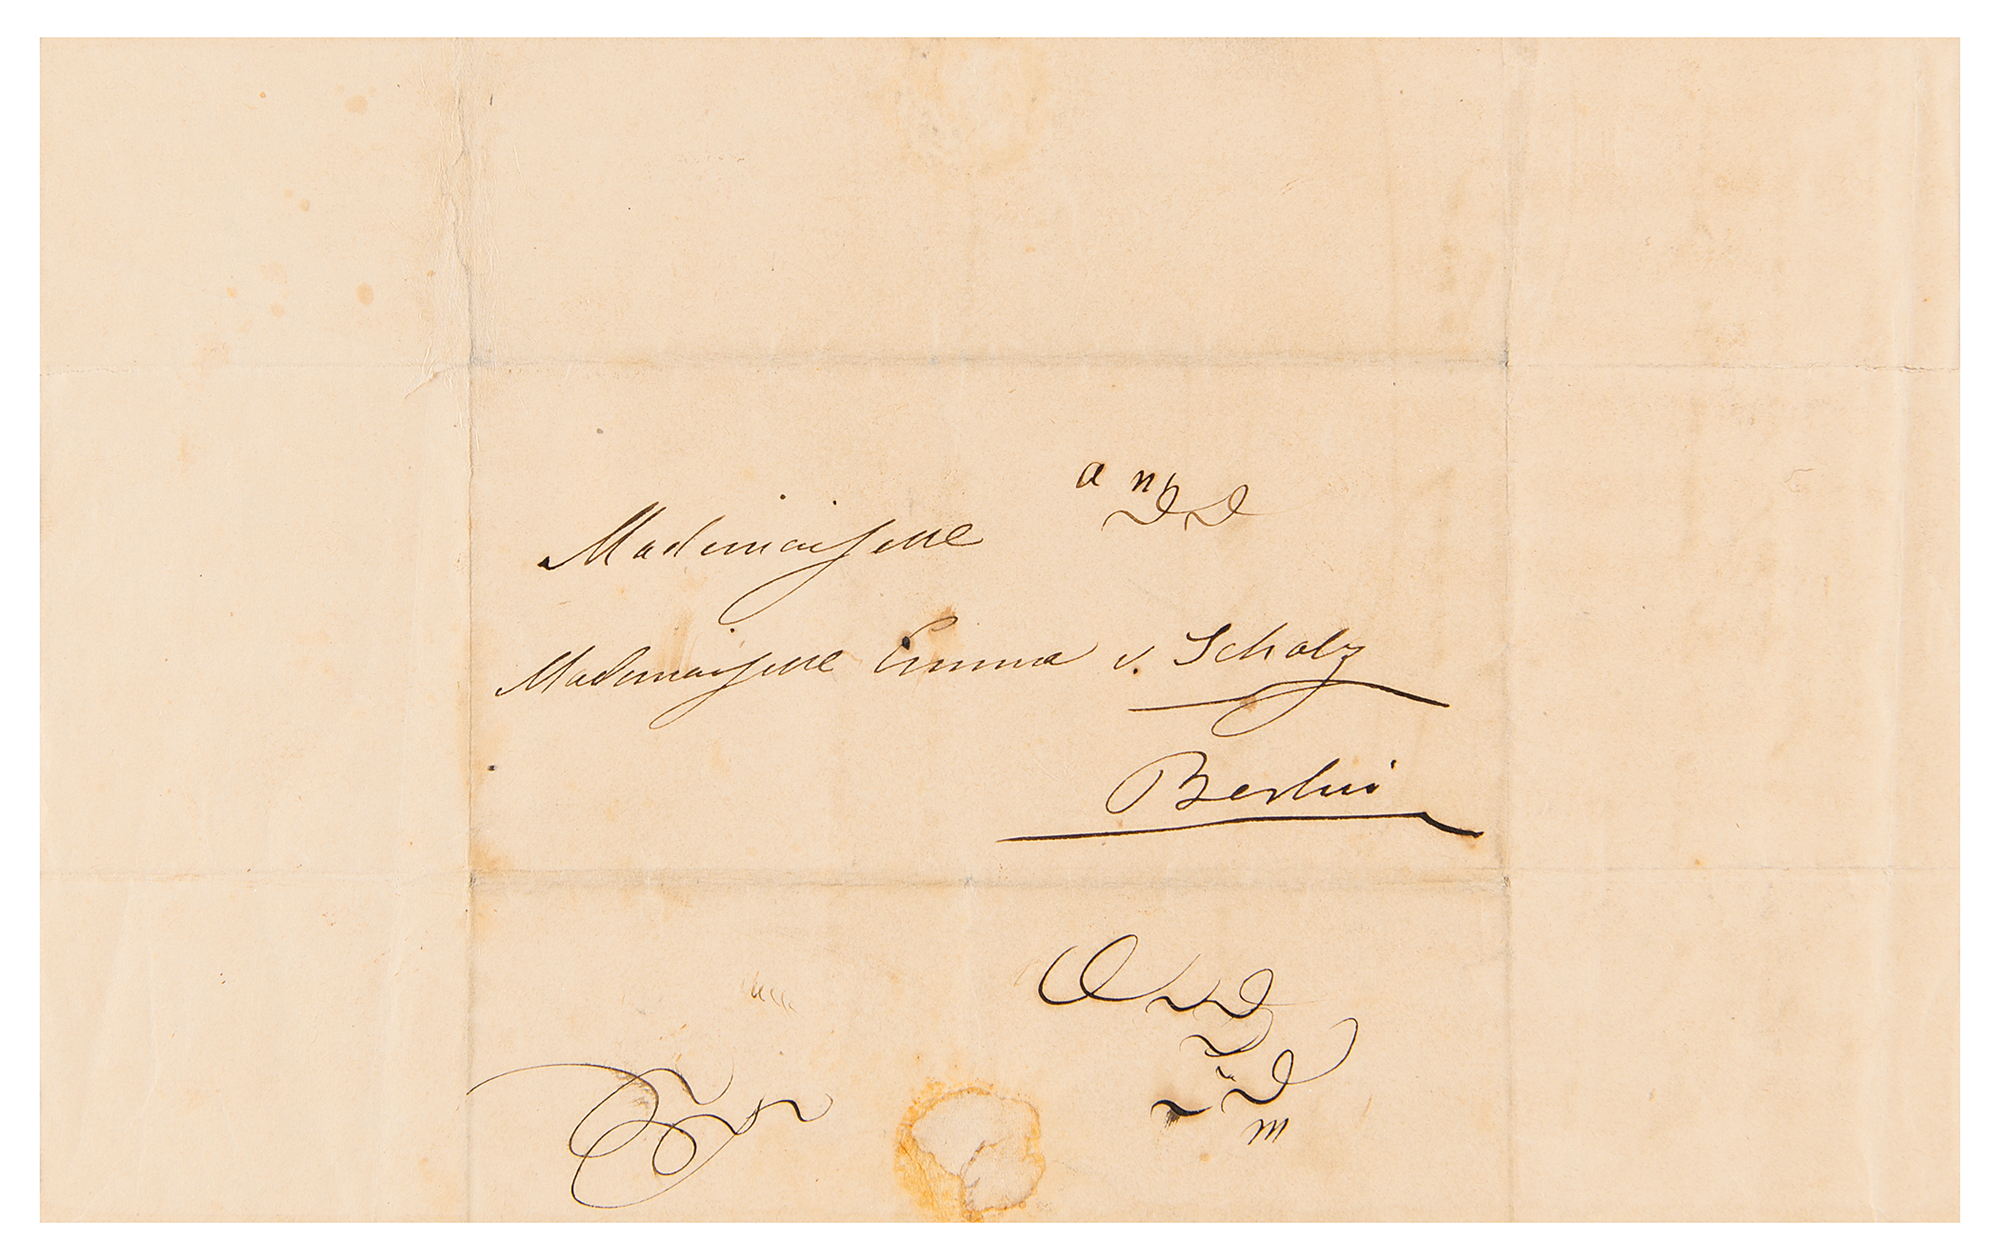 a n
Mademoiselle
Mademoiselle Emma v. Scholz
Berlin
m